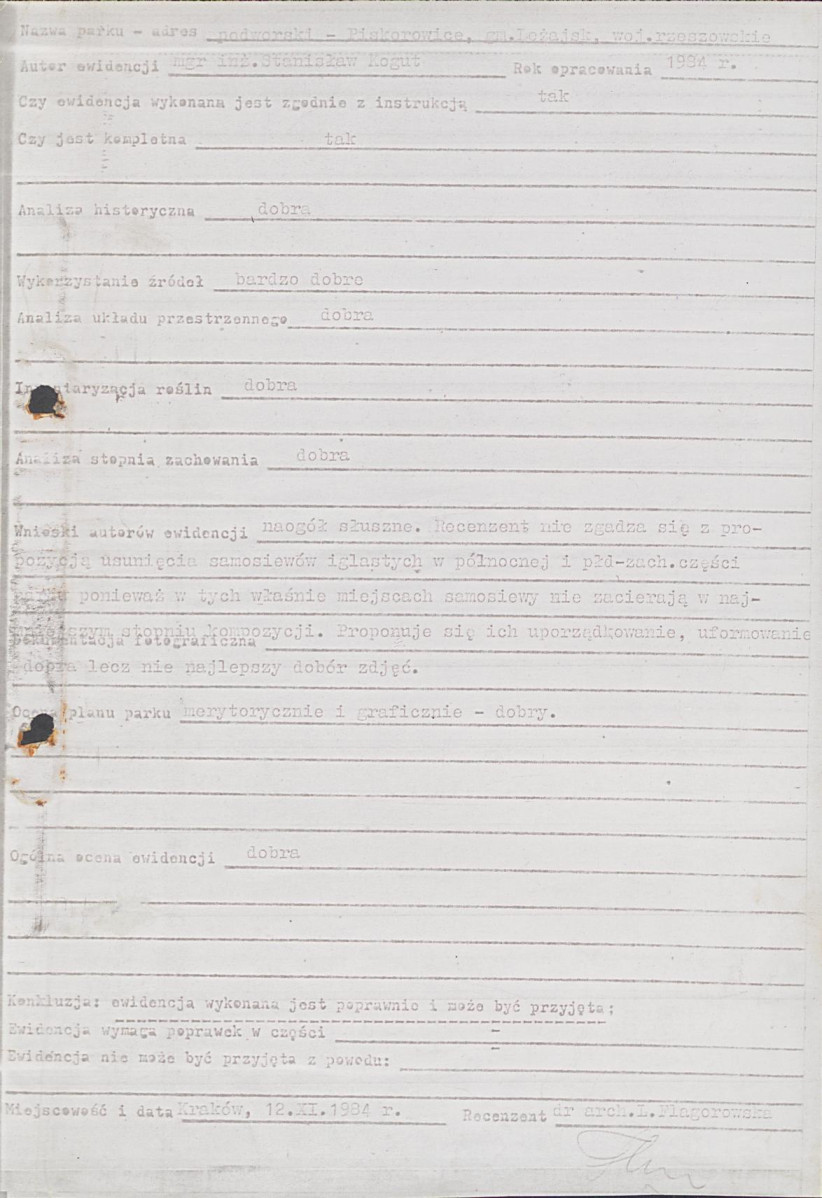 Nazwa parku - adres podworski - Piskorowice, gm.Leżajsk, woj.rzeszowskie
Autor ewidencji mgr inż.Stanisław Kogut Rok opracowania 1984 r.
Czy ewidencja wykonana jest zgodnie z instrukcją tak
Czy jest kompletna tak
Analiza historyczna dobra
Wykorzystanie źródeł bardzo dobre
Analiza układu przestrzennego dobra
Inwentaryzacja roślin dobra
Analiza stopnia zachowania dobra
Wnioski autorów ewidencji naogół słuszne. Recenzent nie zgadza się z pro-
pozycją usunięcia samosiewów iglastych w północnej i płd-zach.części
parku ponieważ w tych właśnie miejscach samosiewy nie zacierają w naj-
mniejszym stopniu kompozycji. Proponuje się ich uporządkowanie, uformowanie
Dokumentacja fotograficzna
dobra lecz nie najlepszy dobór zdjęć.
Ocena planu parku merytorycznie i graficznie - dobry.
Ogólna ocena ewidencji dobra
Konkluzja: ewidencja wykonana jest poprawnie i może być przyjęta;
Ewidencja wymaga poprawek w części -
Ewidencja nie może być przyjęta z powodu: -
Miejscowość i data Kraków, 12.XI.1984 r. Recenzent dr arch.L.Flagorowska